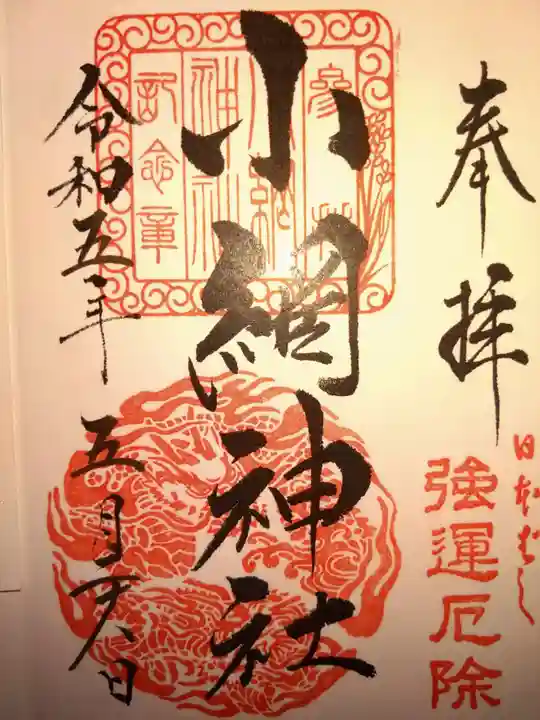 奉拝
日本ばし
強運厄除
参拝
小網
神社
記念章
小網神社
令和五年 五月 日